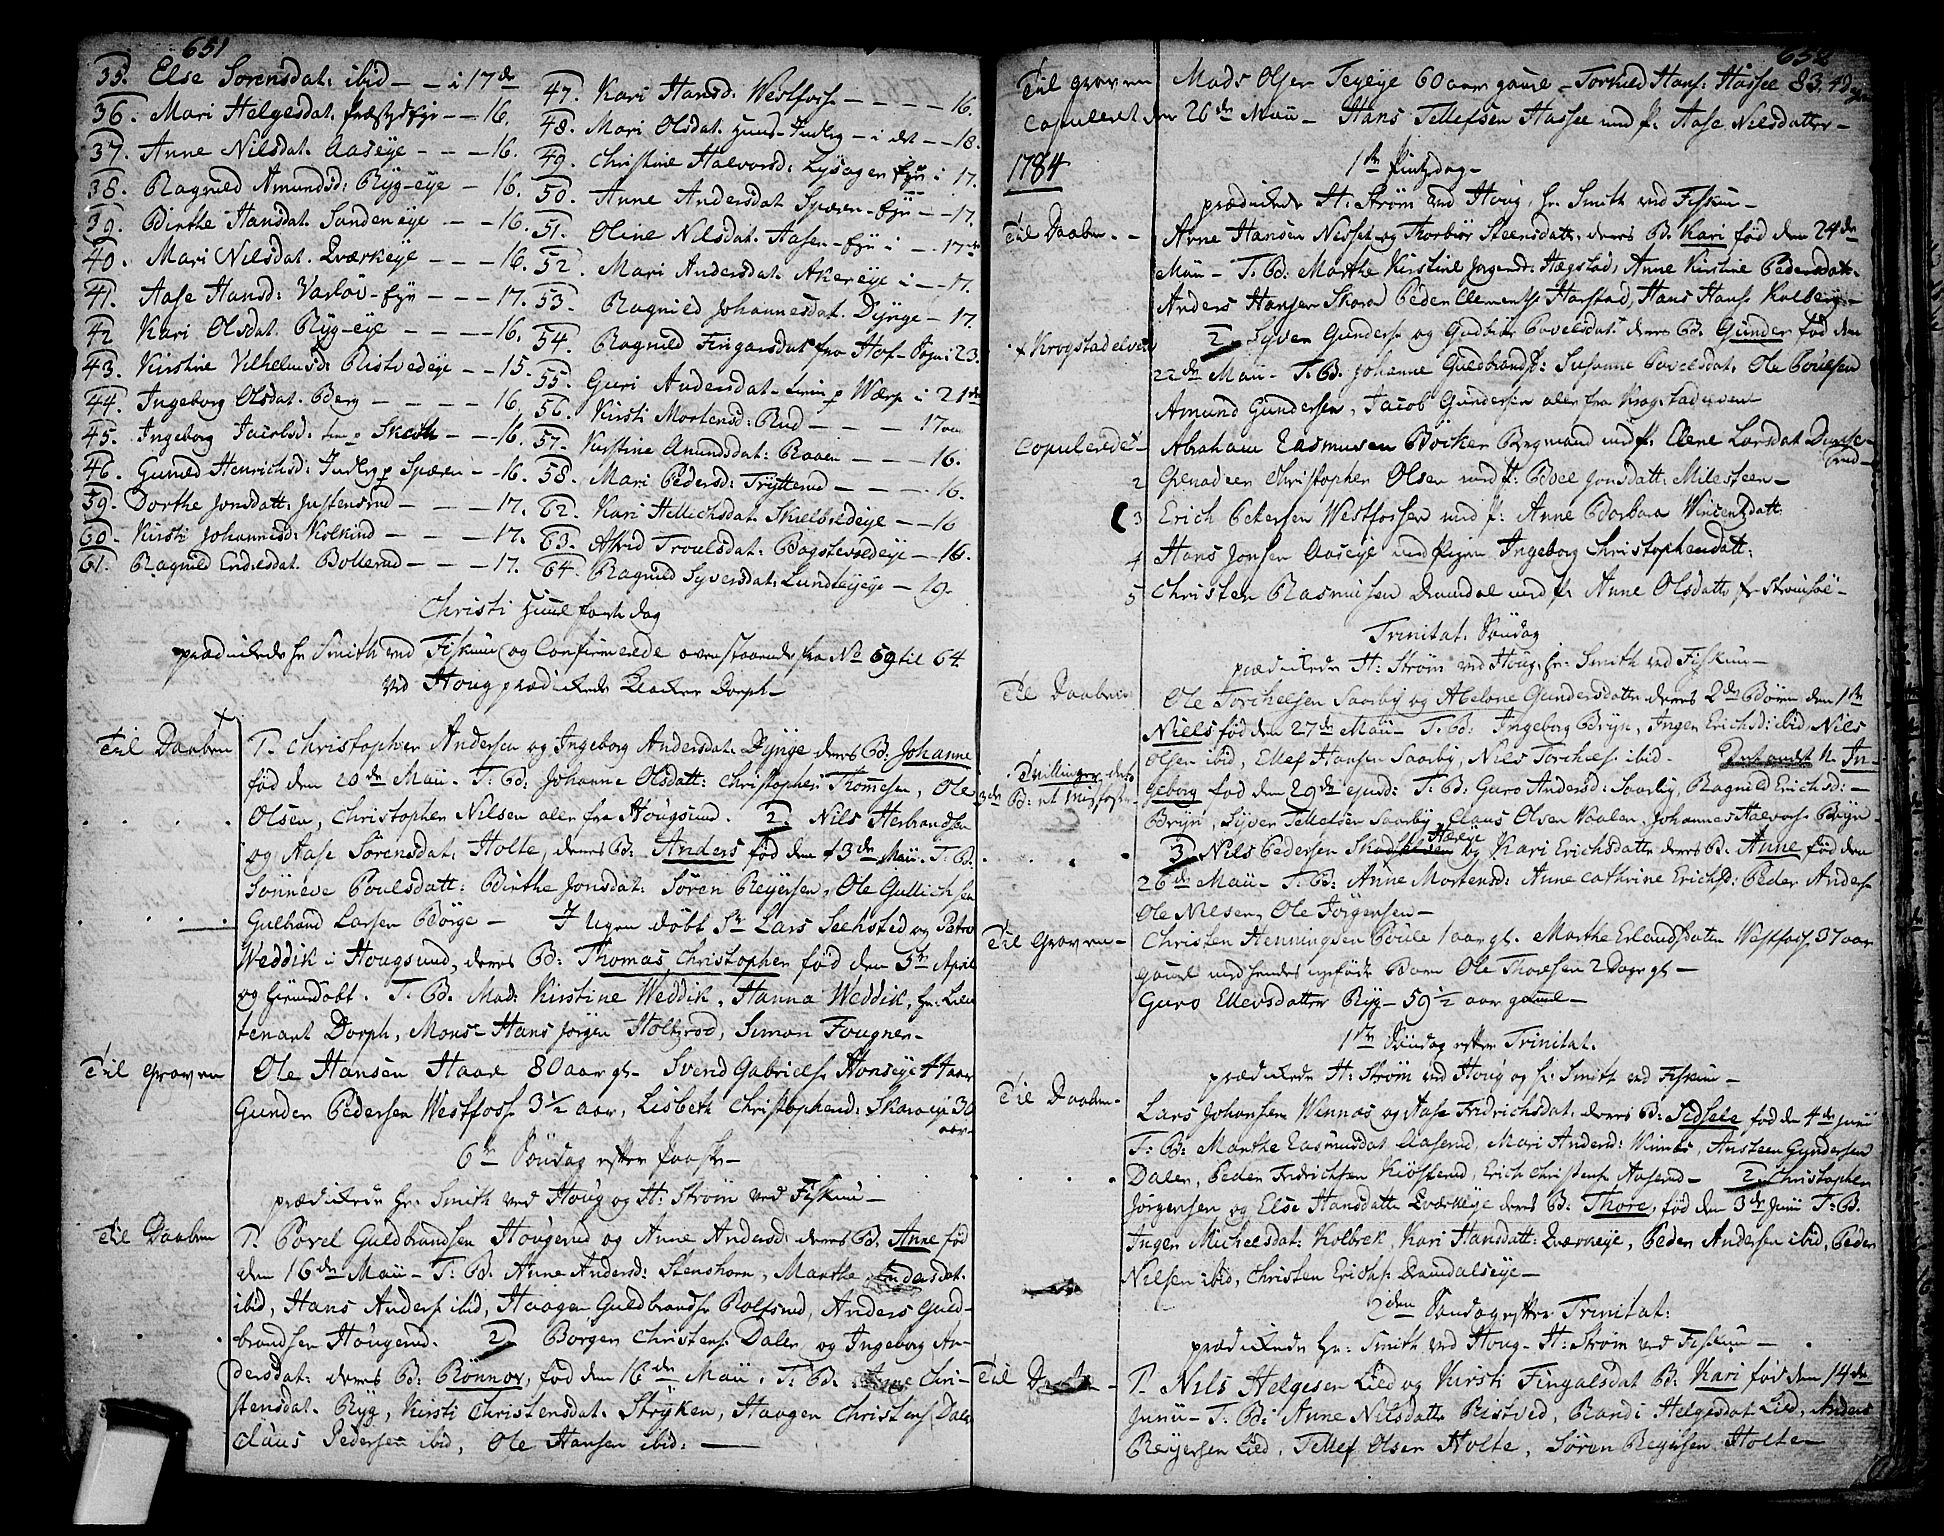 651
35. Else Sørensdat: ibid - - i 17de
36. Mari Helgesdat. - - 16.
37. Anne Nilsdat. Aaseÿe - - - 16.
38. Ragnild Amundsd: Rÿg-eÿe - 16.
39. Birthe Hansdat. Sandeneÿe - - 16.
40. Mari Nilsdat. Qværkeÿe - - - 16.
41. Aase Hansd: Varlov-Eÿe - - - 17.
42 Kari Olsdat. Rÿg-eÿe - - - - 16.
43. Kirstine Vilhelmsd: Ristvedeÿe - - 15.
44. Ingeborg Olsdat. Berg - - - - 16.
45. Ingeborg Jacobsd: - - 16.
46. Gunild Henrichsd: Spæren - - 16.
59. Dorthe Jonsdatt: Justensrud - - - 17.
60. Kirsti Johannesd: Kolkind - - - 17.
61. Ragnild Endresdat. Bollerud - - - 17.
47. Kari Hansd: Westfoss - - - - 16.
48. Mari Olsdat. - i det - - 18.
49. Christine Halvorsd: Lÿsager Eÿe i 17.
50. Anne Andersdat Spæren-Eÿe - - 17.
51. Oline Nilsdat. Aasen-Eÿe i - - 17de
52. Mari Andersdat. Akereÿe i - - 17.
53. Ragnild Johannesdat. Dÿnge - 17.
54. Ragnild Fingarsdat fra Hof-Sogn i 23.
55. Guri Andersdat. Wærp i 21de
56. Kirsti Mortensd: Rud - - - - 17
57. Kirstine Amundsdat: Raaen - - - 16.
58. Mari Pedersd: Trÿtterud - - - - 16.
62. Kari Hellichsdat. Skielbredeÿe - - 16
63. Astrid Troulsdat: Bagstevoldeÿe - - 16.
64. Ragnild Sÿversdat: Lundteÿeÿe - 19.
Christi Himmelfarts dag
prædikede hr Smith ved Fiskum og Confirmerede ovenstaaende fra No 59 til 64.
ved Houg prædikede Klocker Dorph -
Til Daaben P. Christopher Andersen og Ingeborg Andersdat. Dÿnge deres B: Johanne
fød den 20de Maii. T: B: Johanne Olsdatt: Christopher Thomesen, Ole
Olsen, Christopher Nilsen alle fra Hougsund. 2. Nils Herbrandsen
og Aase Sørensdat. Holte, deres B: Anders fød den 13de Maii. T. B:
Sønneve Poulsdatt: Birthe Jonsdat: Søren Reÿersen, Ole Gullichsen
Gulbrand Larsen Børge - I ugen døbt Sr Lars Seehsted og Petro
Weddik i Hougsund, deres B: Thomas Christopher fød den 5te April
og hiemdøbt. T. B. Mad: Kirstine Weddik, Hanna Weddik, hr: Lieu
tenant Dorph, Mons: Hans Jørgen Holtzrod, Simon Fougner -
Til Graven Ole Hansen Haare 80 aar gl. Svend Gabrielss: Honseÿe 4 aar
Gunder Pedersen Westfoss 3 1/2 aar, Lisbeth Christophersd: Skaraeÿe 30
aar -
6te Søndag efter Paaske -
prædikede hr. Smith ved Houg og H: Strøm ved Fiskum -
Til Daaben P. Povel Guldbrandsen Hougerud og Anne Andersd: deres B: Anne fød
den 16de Maii - T: B: Anne Andersd: Stenshorn, Marthe Andersdat.
ibid, Hans Anderss: ibid, Haagen Guldbrandss: Rolfsrud, Anders Guld-
brandsen Hougerud. 2 Borger Christenss: Dalen og Ingeborg An-
dersdat: deres B: Rønnov, fød den 16de Maii, T: B: Anne Chri-
stensdat. Rÿg, Kirsti Christensdat. Strÿken, Haagen Christenss: Dalen
Claus Pedersen ibid, Ole Hansen ibid: -
652
Til Graven Mads Olsen Teÿeÿe 60 aar gamle - Torkild Hanss: Hassel 83.
Copuleret den 26de Maii - Hans Tellefsen Hassel med P: Aase Nilsdatter -
1784 1ste Pintzdag -
prædikede H: Strøm ved Houg, hr. Smith ved Fiskum -
Til Daaben - Arne Hansen Nisset og Thorbiør Steensdatt: deres B: Kari fød den 24de
Maii - T: B: Marthe Kirstine Jørgensd: Hægstad, Anne Kirstine Pedersdat:
Anders Hansen Skara Peder Clementss Harstad, Hans Hanss: Kolberg -
f Krogstadelven 2 Sÿver Gunderss: og Gudbiør Povelsdat: deres B: Gunder fød den
22de Maii - T: B: Johanne Guldbrandss: Susanne Povelsdat. Ole Poulsen
Amund Gundersen, Jacob Gundersen alle fra Krogstadelven
Copulerede - Abraham Rasmussen Böcker Bergmand med P: Elene Larsdat Dunse-
rud -
2 Grenadeer Christopher Olsen med P: Boel Jonsdatt: Milesteen -
3 Erich Petersen Westfossen med P: Anne Barbara Vincentzdatt:
4 Hans Jonsen Aaseÿe med Pigen Ingeborg Christophersdatt:
5 Christen Rasmussen Damdal med P: Anne Olsdatt: fr Strømsöe -
Trinitat: Søndag
prædikede H: Strøm ved Houg, hr: Smith ved Fiskum -
Til Daaben Ole Torchelsen Saasbÿ og Abelone Gundersdatter deres 2de Børn den 1ste
Niels fød den 27de Maii - T: B: Ingeborg Brÿn, Inger Erichsd: ibid, Nils
Olsen ibid, Ellef Hansen Saasbÿ, Nils Torchelss: ibid. n. In-
Tvillinger
geborg fød den 29de ejusd: T: B: Guro Andersd: Saasbÿ, Ragnild Erichsd: -
Brÿn, Sÿver Tellefsen Saasbÿ Claus Olsen Vaalen, Johannes Halvorss: Brÿn
3 Nils Pedersen Hæreÿe og Kari Erichsdatter deres B: Anne fød den
26de Maii - T: B: Anne Mortensd: Anne Cathrine Erichsd: Peder Anderss:
Ole Nilsen, Ole Jørgensen -
Til Graven - Christen Henningsen Poule 1 aar gl. Marthe Erlandsdatter Westfoss 37 aar
gamel med hendes nyfødte Barn Ole Thoresen 2 Dage gl -
Guro Ellevsdatter Rÿg - 59 1/2 aar gamel -
1ste Søndag efter Trinitat.
prædikede H: Strøm ved Houg og hr: Smith ved Fiskum -
Til Daaben - Lars Johansen Winnæs og Aase Fridrichsdat: deres B: Sidsele, fød den 4de junii
T: B: Marthe Rasmusdat Aaserud, Mari Andersd: Winnes, Ansteen Gundersen
Dalen, Peder Fridrichsen Kiösterud, Erich Christenss Aaserud - 2 Christopher
Jørgensen og Else Hansdatter Qværkeÿe deres B: Thore, fød den 3de Junii T: B.
Inger Michelsdat: Kolbrek, Kari Hansdatt: Qværkeÿe, Peder Andersen ibid, Peder
Nilsen ibid, Christen Erichss: Damdalseÿe -
2den Søndag efter Trinitat:
prædikede hr: Smith ved Houg - H: Strøm ved Fiskum -
Til Daaben - P. Nils Helgesen Lied og Kirsti Fingalsdat B: Kari fød den 14de
Junii - T: B: Anne Nilsdatter Ristved, Randi Helgesdat Lied, Anders
Reÿersen Lied, Tellef Olsen Holte, Søren Reÿersen Holte -